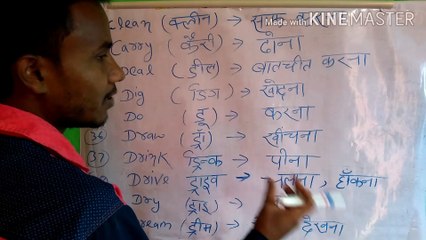 Made with
KINEMASTER
Clean (क्लीन) → साफ
Carry (कैरी) → ढोना
Deal (डील) → बातचीत करना
Dig (डिग) → खोदना
Do (डू) → करना
(36) Draw (ड्रॉ) → खींचना
(37) Drink ड्रिन्क → पीना
Drive ड्राइव → चलाना, हाँकना
Dry (ड्राई) →
ream (ड्रीम) → देखना